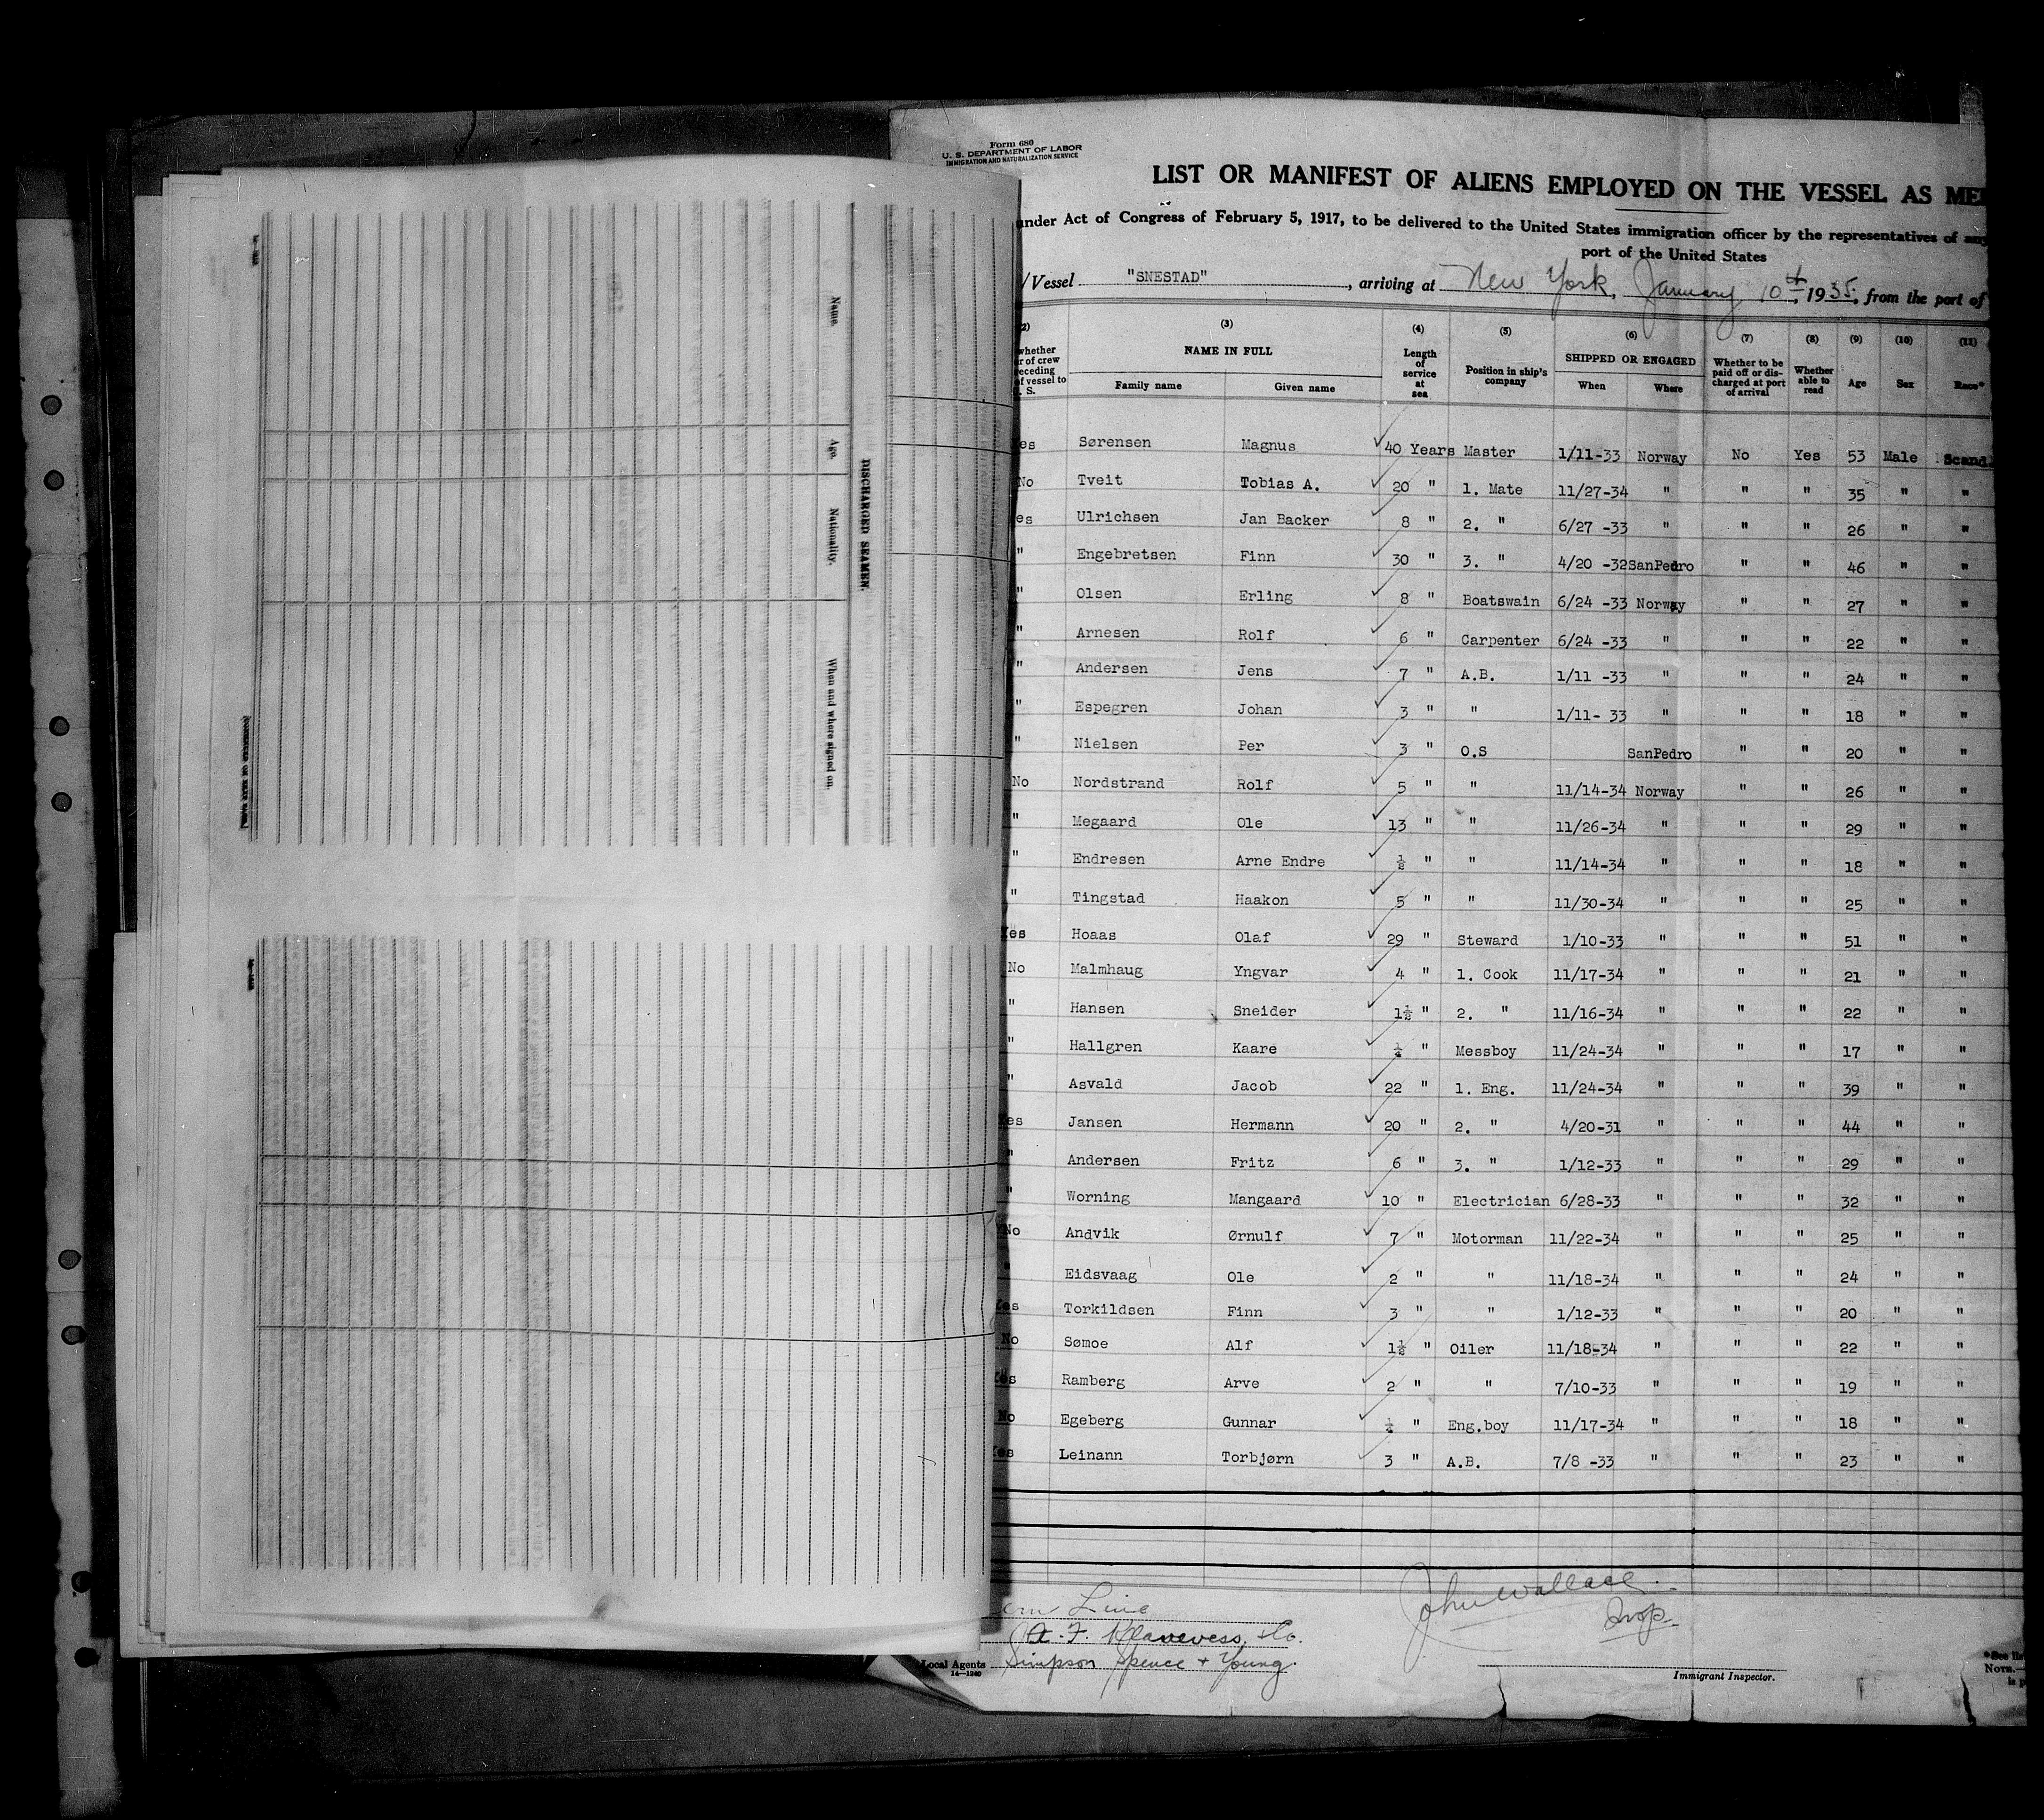 Form 680
U. S. DEPARTMENT OF LABOR
IMMIGRATION AND NATURALIZATION SERVICE
LIST OR MANIFEST OF ALIENS EMPLOYED ON THE VESSEL AS
under Act of Congress of February 5, 1917, to be delivered to the United States immigration officer by the representatives of any
port of the United States
Vessel "SNESTAD", arriving at New York, January 10th, 1935, from the port of
(3) (4) (5) (6) (7) (8) (9) (10) (11)
whether of crew preceding of vessel to U. S. NAME IN FULL Family name Given name Length of service at sea Position in ship's company SHIPPED OR ENGAGED When Where Whether to be paid off or discharged at port of arrival Whether able to read Age Sex Race*
Yes Sørensen Magnus 40 Years Master 1/11-33 Norway No Yes 53 Male Scand.
No Tveit Tobias A. 20 " 1. Mate 11/27-34 " " " 35 " "
Yes Ulrichsen Jan Backer 8 " 2. " 6/27 -33 " " " 26 " "
" Engebretsen Finn 30 " 3. " 4/20 -32 SanPedro " " 46 " "
" Olsen Erling 8 " Boatswain 6/24 -33 Norway " " 27 " "
" Arnesen Rolf 6 " Carpenter 6/24 -33 " " " 22 " "
" Andersen Jens 7 " A.B. 1/11 -33 " " " 24 " "
" Espegren Johan 3 " " 1/11- 33 " " " 18 " "
" Nielsen Per 3 " O.S SanPedro " " 20 " "
No Nordstrand Rolf 5 " " 11/14-34 Norway " " 26 " "
" Megaard Ole 13 " " 11/26-34 " " " 29 " "
" Endresen Arne Endre ½ " " 11/14-34 " " " 18 " "
" Tingstad Haakon 5 " " 11/30-34 " " " 25 " "
Yes Hoaas Olaf 29 " Steward 1/10-33 " " " 51 " "
No Malmhaug Yngvar 4 " 1. Cook 11/17-34 " " " 21 " "
" Hansen Sneider 1½ " 2. " 11/16-34 " " " 22 " "
" Hallgren Kaare " Messboy 11/24-34 " " " 17 " "
" Asvald Jacob 22 " 1. Eng. 11/24-34 " " " 39 " "
Yes Jansen Hermann 20 " 2. " 4/20-31 " " " 44 " "
" Andersen Fritz 6 " 3. " 1/12-33 " " " 29 " "
" Worning Mangaard 10 " Electrician 6/28-33 " " " 32 " "
No Andvik Ørnulf 7 " Motorman 11/22-34 " " " 25 " "
" Eidsvaag Ole 2 " " 11/18-34 " " " 24 " "
Yes Torkildsen Finn 3 " " 1/12-33 " " " 20 " "
No Sømoe Alf 1½ " Oiler 11/18-34 " " " 22 " "
Yes Ramberg Arve 2 " " 7/10-33 " " " 19 " "
No Egeberg Gunnar " Eng.boy 11/17-34 " " " 18 " "
Yes Leinann Torbjørn 3 " A.B. 7/8 -33 " " " 23 " "
Line
A. F. Klaveness & Co.
Local Agents Simpson Spence + Young.
14-1240
John Wallace
Insp.
Immigrant Inspector.
*See
NOTE.—
DISCHARGED SEAMEN.
Name.
Age.
Nationality.
When and where signed on.